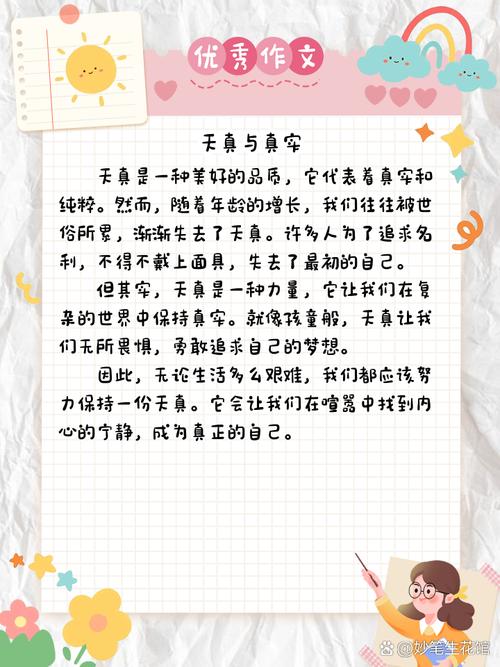 优秀作文
天真与真实
天真是一种美好的品质，它代表着真实和
纯粹。然而，随着年龄的增长，我们往往被世
俗所累，渐渐失去了天真。许多人为了追求名
利，不得不戴上面具，失去了最初的自己。
但其实，天真是一种力量，它让我们在复
杂的世界中保持真实。就像孩童般，天真让我
们无所畏惧，勇敢追求自己的梦想。
因此，无论生活多么艰难，我们都应该努
力保持一份天真。它会让我们在喧嚣中找到内
心的宁静，成为真正的自己。
妙笔生花馆